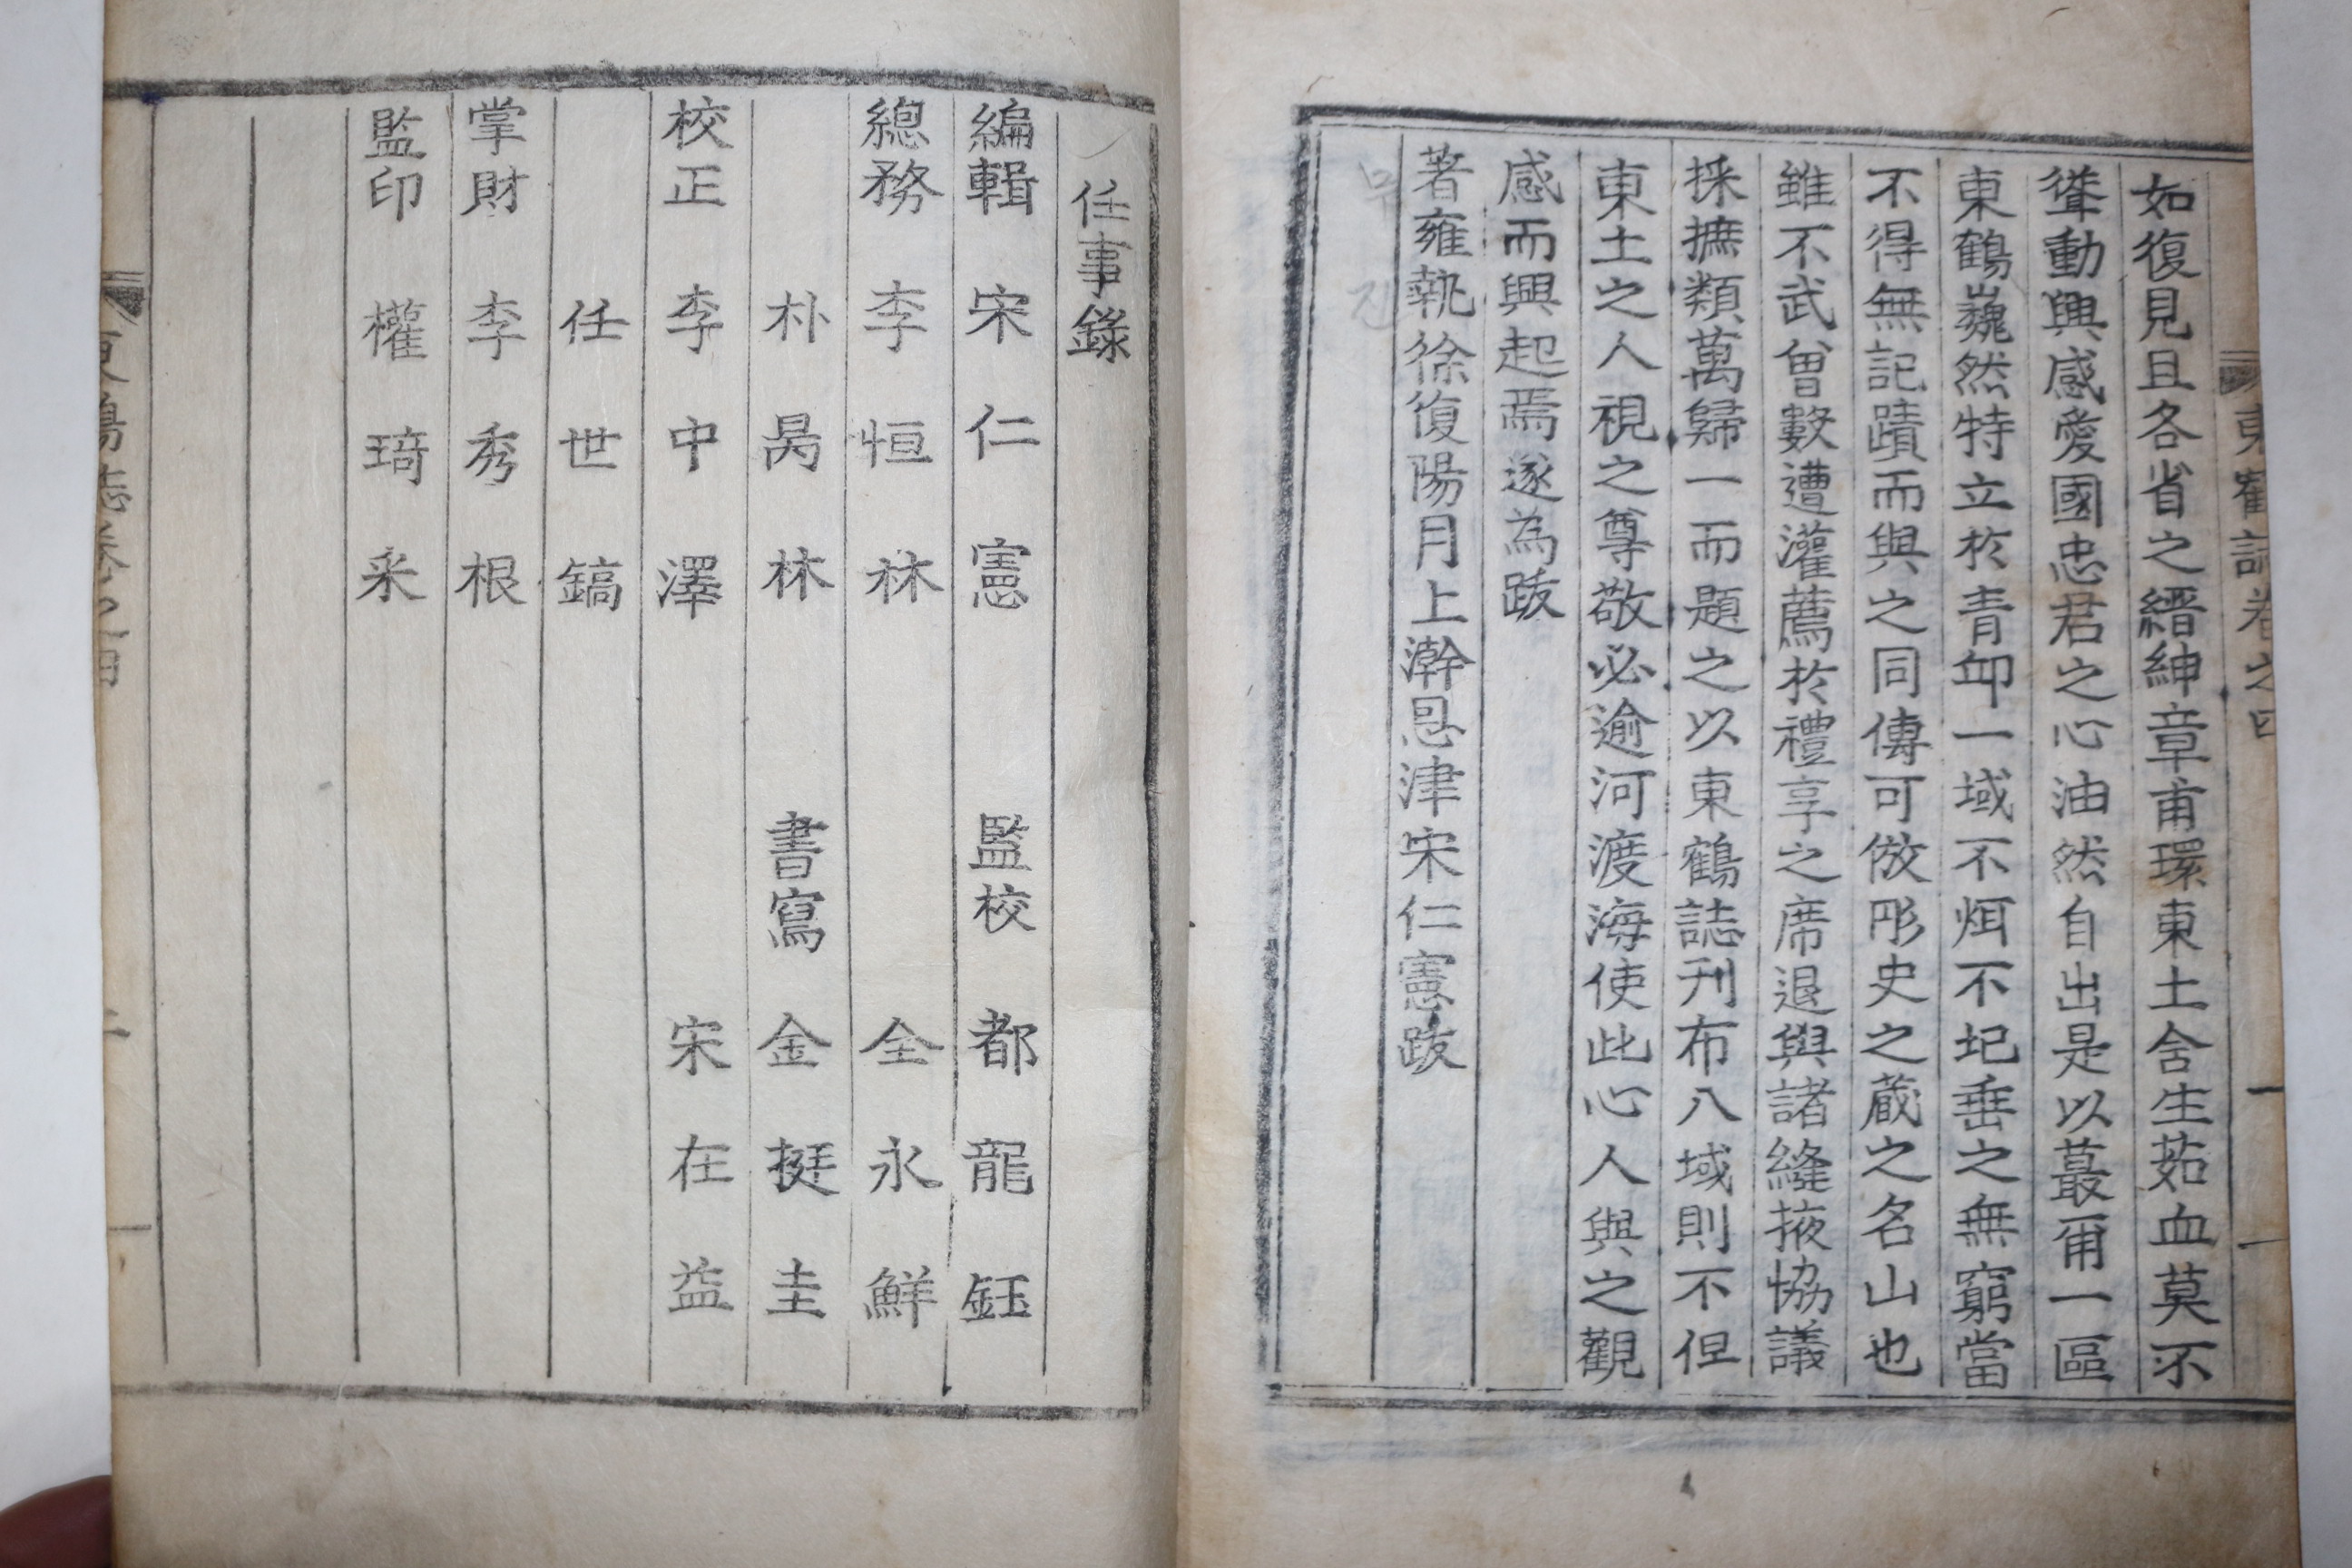 東鶴誌卷之四
如復見且各省之縉紳章甫環東土含生茹血莫不
聳動興感愛國忠君之心油然自出是以蕞爾一區
東鶴巍然特立於青邱一域不烜不圮垂之無窮當
不得無記蹟而與之同傳可倣彤史之蔵之名山也
雖不武曾數遭灌薦於禮享之席退與諸縫掖協議
採摭類萬歸一而題之以東鶴誌刊布八域則不但
東土之人視之尊敬必逾河渡海使此心人與之觀
感而興起焉遂為跋
著雍執徐復陽月上澣恩津宋仁憲跋
任事錄
編輯 宋仁憲 監校 都龍鈺
總務 李恒林 全永鮮
朴昺林 書寫 金挺圭
校正 李中澤 宋在益
任世鎬
掌財 李秀根
監印 權琦釆